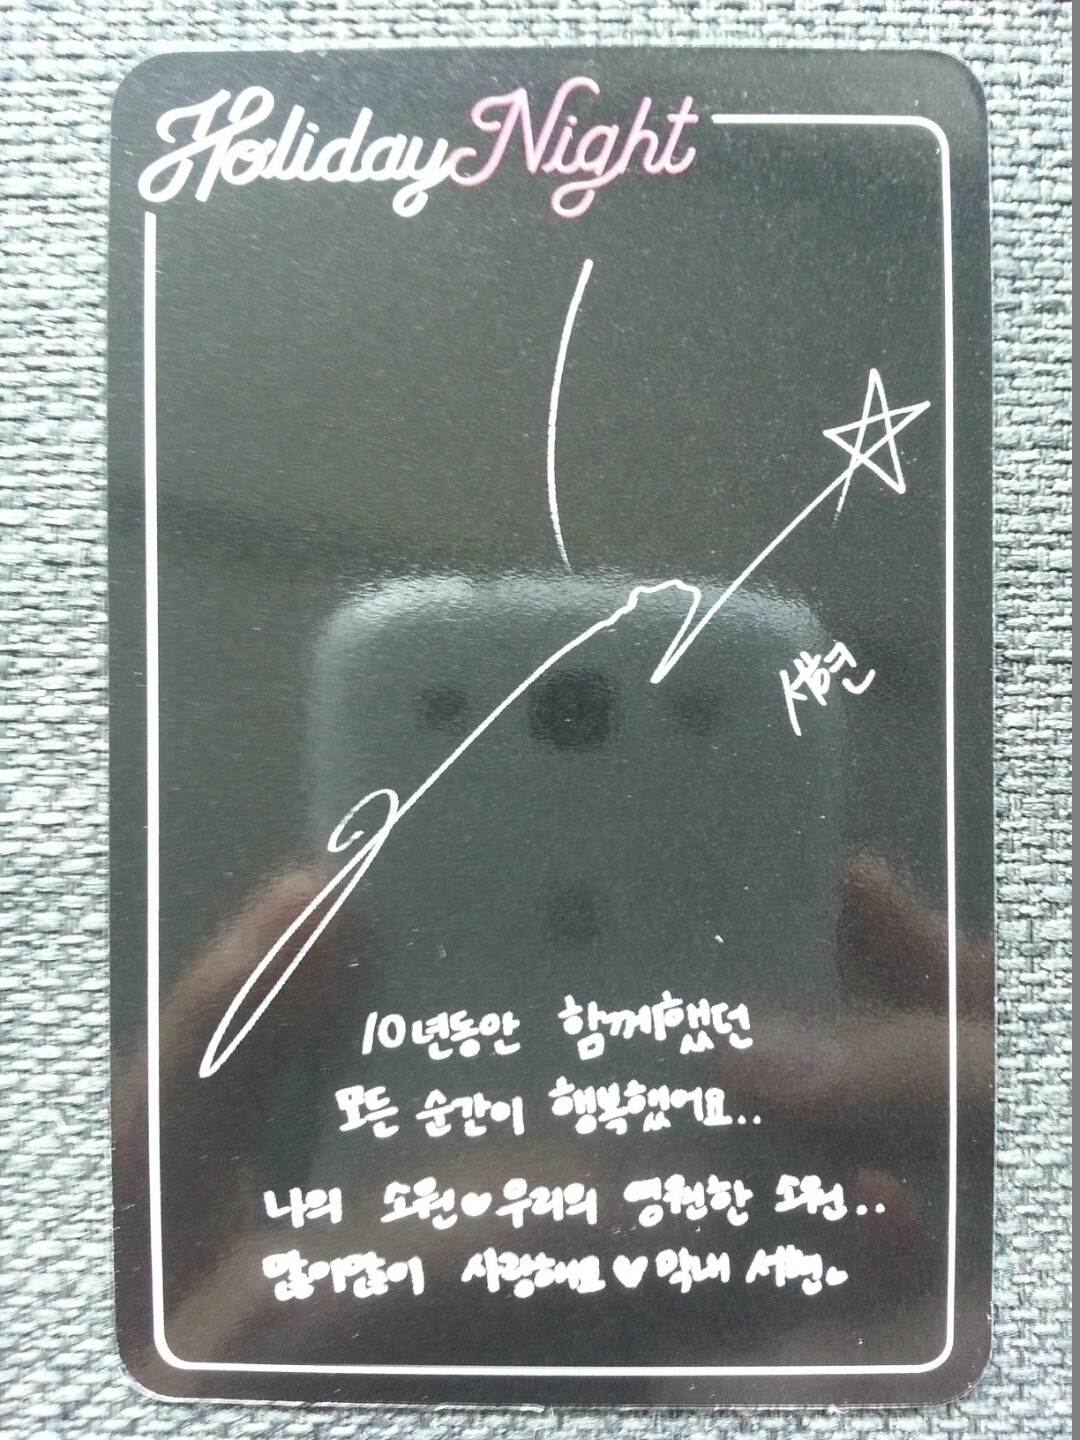 Holiday Night
서현
10년동안 함께했던
모든 순간이 행복했어요..
나의 소원♥우리의 영원한 소원..
많이많이 사랑해요♥막내 서현♥